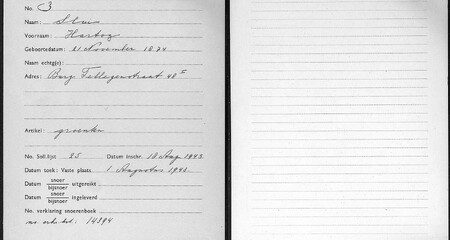 No. 3
Naam: Slus
Voornaam: Hartog
Geboortedatum: 21 November 1874
Naam echtg(e):
Adres: Burg Tellegenstraat 48 II
Artikel: groenten
No. Soll.lijst 25 Datum inschr. 18 Aug 1943
Datum toek: Vaste plaats. 1 Augustus 1942.
Datum snoer bijsnoer uitgereikt
Datum snoer bijsnoer ingeleverd
No. verklaring snoerenboek
14394